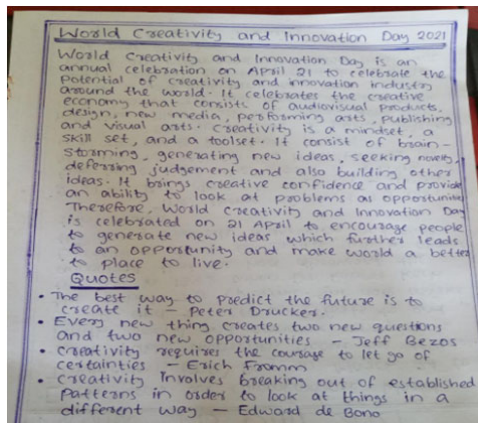 World Creativity and Innovation Day 2021
World Creativity and Innovation Day is an
annual celebration on April 21 to celebrate the
potential of creativity and innovation industry
around the world. It celebrates the creative
economy that consists of audiovisual products,
design, new media, performing arts, publishing
and visual arts. Creativity is a mindset, a
skill set, and a toolset. It consist of brain-
storming, generating new ideas, seeking novelty,
deferring judgement and also building other
ideas. It brings creative confidence and provide
an ability to look at problems as opportunities
Therefore, World Creativity and Innovation Day
is celebrated on 21 April to encourage people
to generate new ideas which further leads
to an opportunity and make world a better
to place to live.
Quotes
• The best way to predict the future is to
create it - Peter Drucker.
• Every new thing creates two new questions
and two new opportunities - Jeff Bezos
• Creativity requires the courage to let go of
certainties - Erich Fromm
• Creativity Involves breaking out of established
patterns in order to look at things in a
different way - Edward de Bono